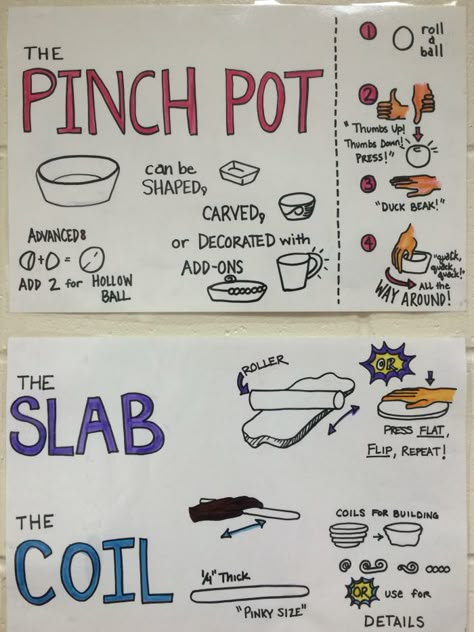 THE
PINCH POT
can be
SHAPED,
CARVED,
or DECORATED with
ADD-ONS
ADVANCED:
+ =
ADD 2 for HOLLOW
BALL
1 roll
a
ball
2
"Thumbs Up!
Thumbs Down!
PRESS!"
3
"DUCK BEAK!"
4
"quack,
quack,
quack!"
All the
WAY AROUND!
THE
SLAB
ROLLER
OR
PRESS FLAT,
FLIP, REPEAT!
THE
COIL
1/4" Thick
"PINKY SIZE"
COILS FOR BUILDING
OR use for
DETAILS